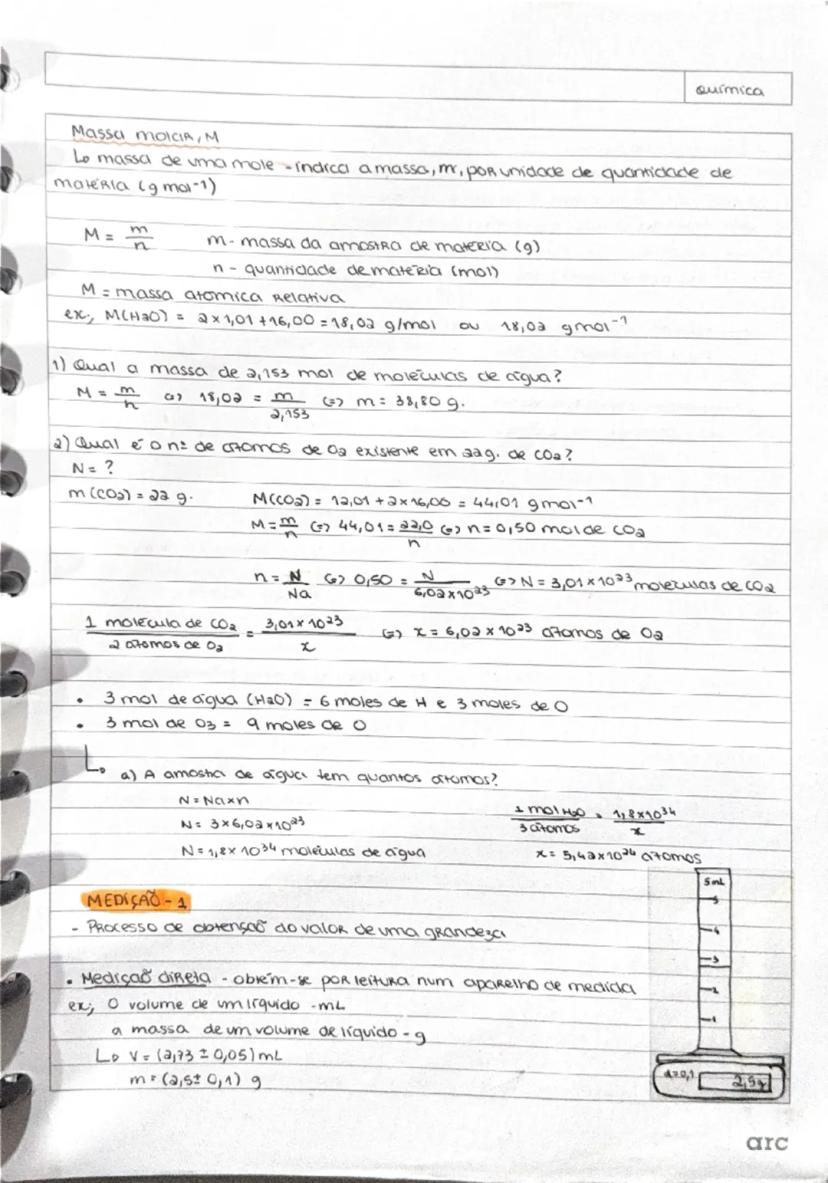 Química
Massa molar, M
↳ massa de uma mole - indica a massa, m, por unidade de quantidade de
matéria (g mol⁻¹)
M = m/n m - massa da amostra de matéria (g)
n - quantidade de matéria (mol)
M = massa atomica relativa
ex; M(H2O) = 2×1,01 + 16,00 = 18,02 g/mol ou 18,02 gmol⁻¹
1) Qual a massa de 2,153 mol de moléculas de água?
M = m/n (=) 18,02 = m/2,153 (=) m = 38,80 g.
2) Qual é o nº de átomos de O2 existente em 22g. de CO2?
N = ?
m (CO2) = 22 g. M(CO2) = 12,01 + 2×16,00 = 44,01 gmol⁻¹
M = m/n (=) 44,01 = 22,0/n (=) n = 0,50 mol de CO2
n = N/Na (=) 0,50 = N/6,02×10²³ (=) N = 3,01×10²³ moléculas de CO2
1 molécula de CO2/2 átomos de O2 = 3,01×10²³/x (=) x = 6,02×10²³ átomos de O2
• 3 mol de água (H2O) = 6 moles de H e 3 moles de O
• 3 mol de O3 = 9 moles de O
↳ a) A amostra de água tem quantos átomos?
N = Na×n
N = 3×6,02×10²³
N = 1,8×10³⁴ moléculas de água
1 mol H2O/3 átomos = 1,8×10³⁴/x
x = 5,42×10²⁴ átomos
MEDIÇÃO - 1
- Processo de obtenção do valor de uma grandeza
• Medição direta - obtém-se por leitura num aparelho de medida
ex; O volume de um líquido - mL
a massa de um volume de líquido - g
↳ V = (2,73 ± 0,05) mL
m = (2,5 ± 0,1) g
5mL
5
4
3
2
1
d=0,1 2,5g
arc